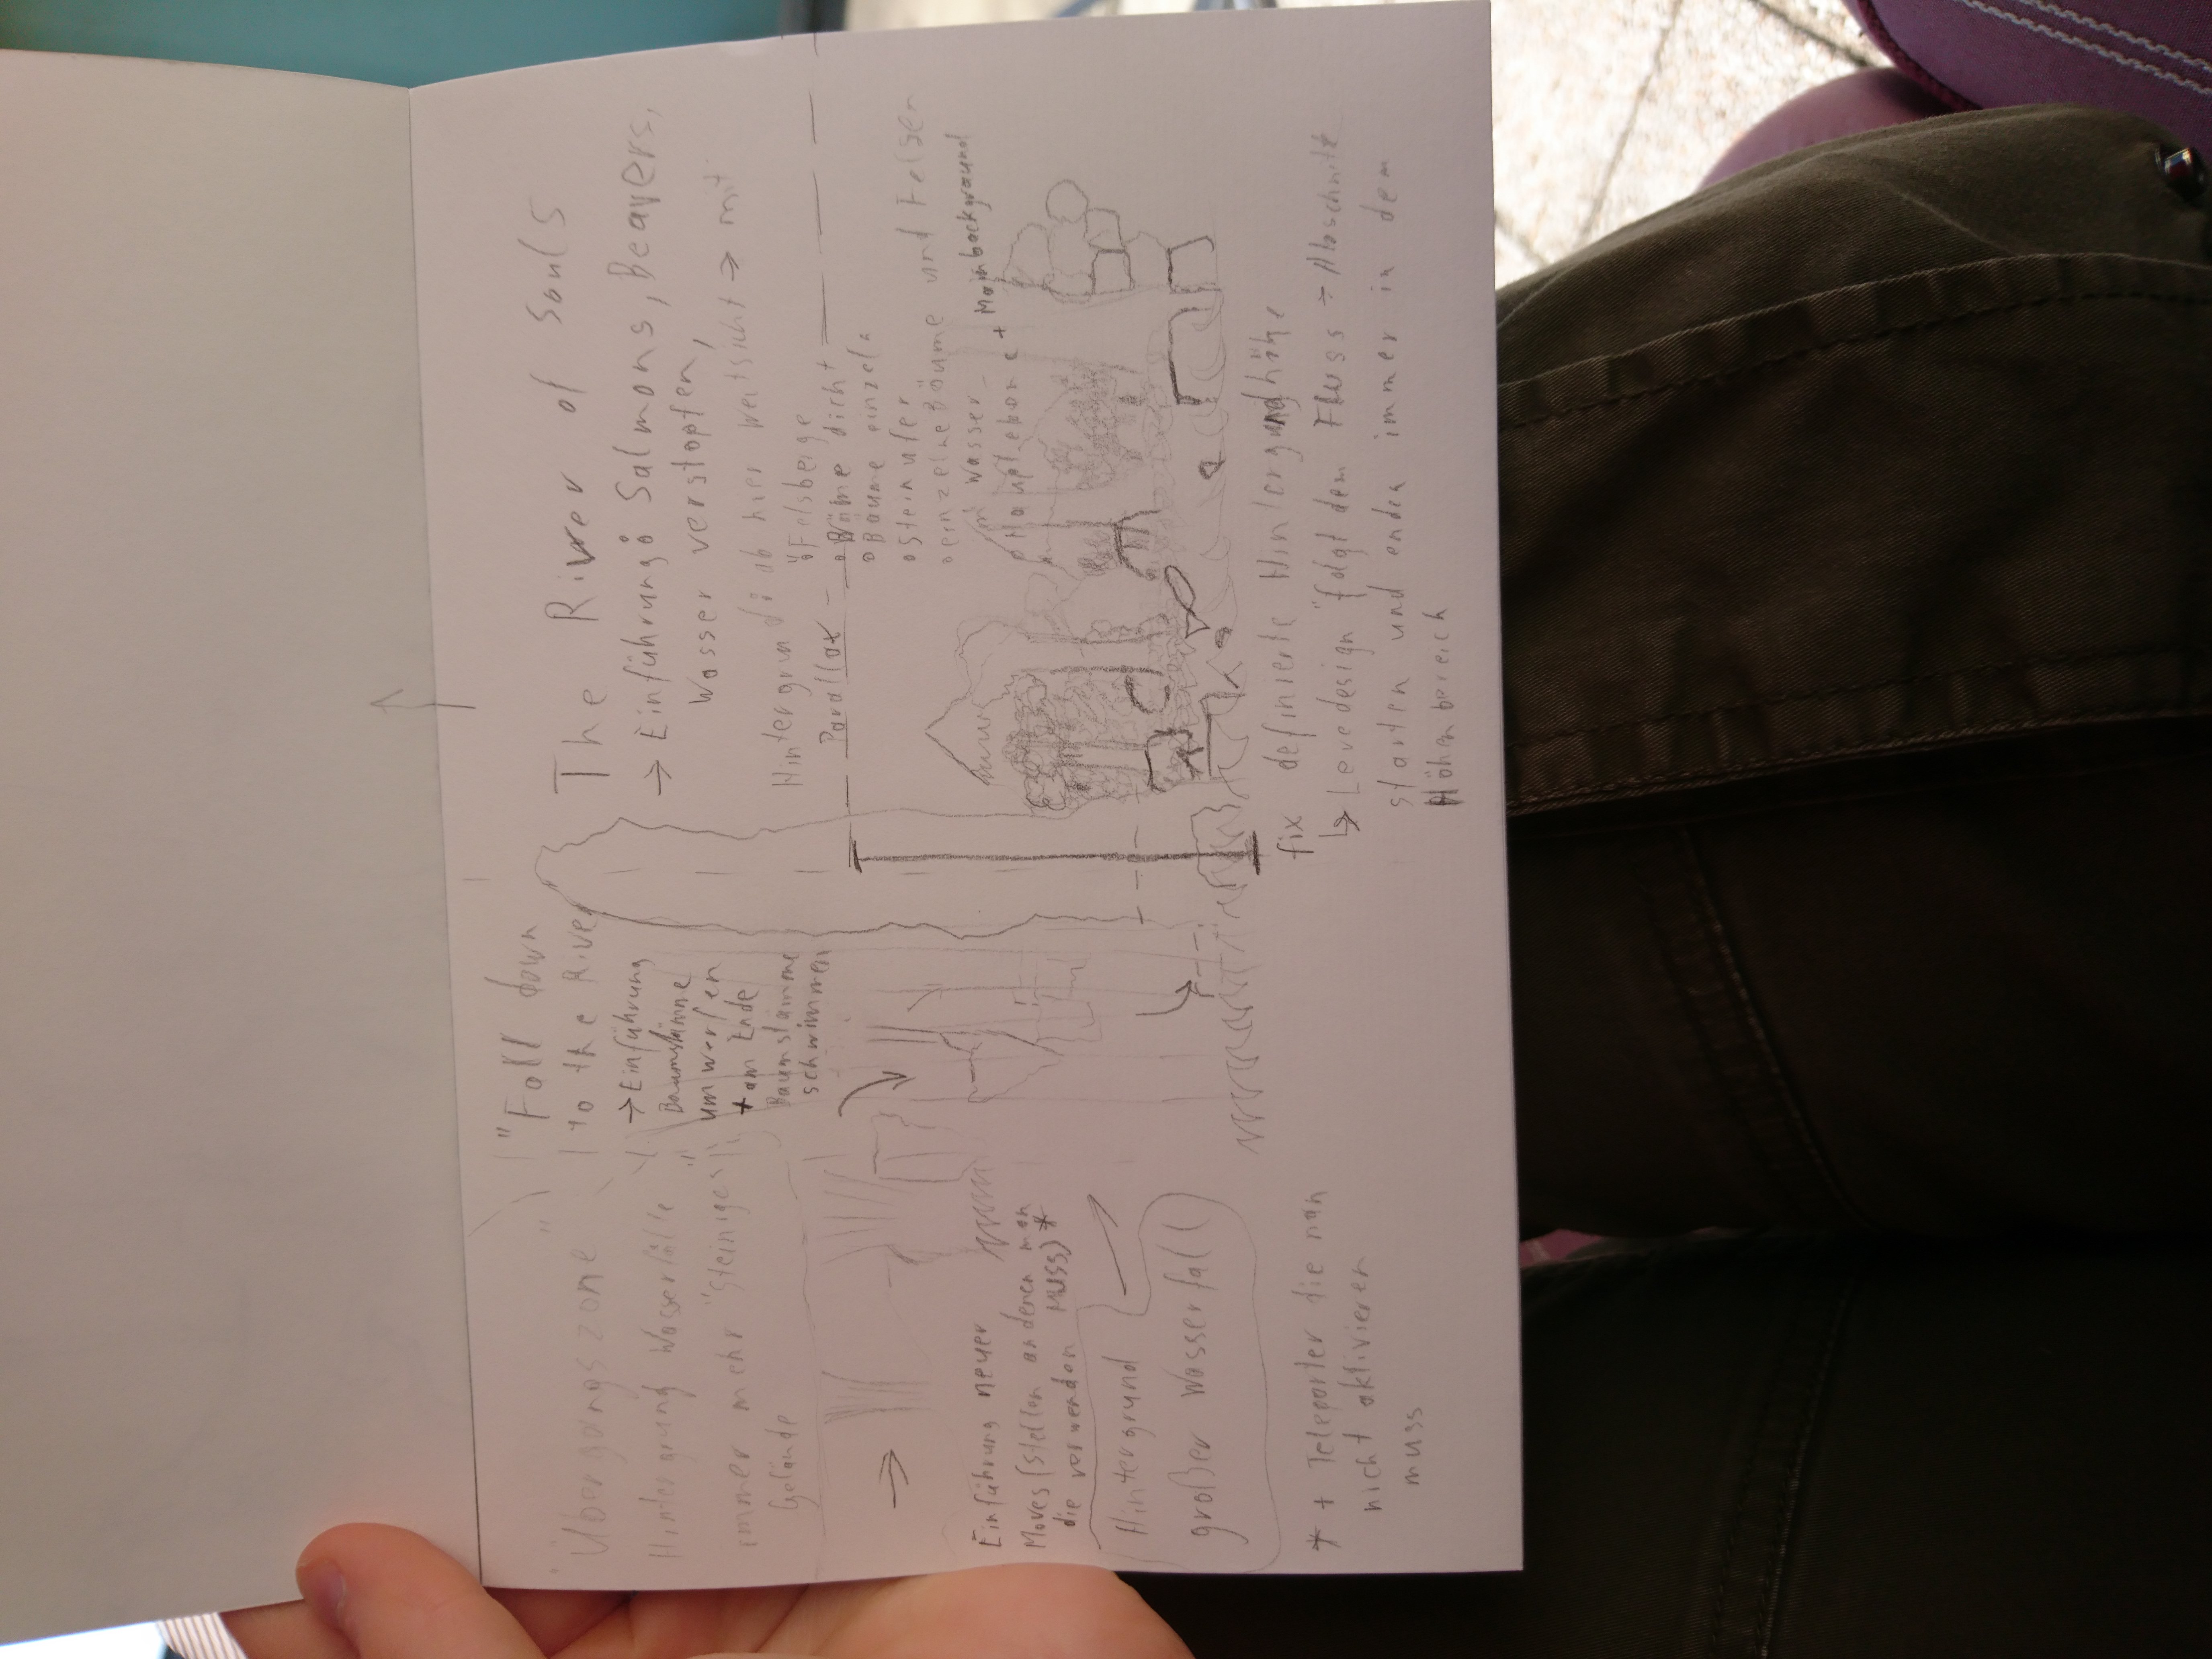 "Übergangszone"
Hintergrund Wasserfälle
immer mehr "Steiniges"
Gelände
Einführung neuer
Moves (Stellen an denen man
die verwenden MUSS) *
Hintergrund
großer Wasserfall
* + Teleporter die man
nicht aktivieren
muss
"Fall down
to the River
→ Einführung
Baumstämme
umwerfen
+ am Ende
Baumstämme
schwimmen
The River of Souls
→ Einführung: Salmons, Beavers,
Wasser verstopfen,
Hintergrund: ab hier Weitsicht → mit
Parallax
° Felsberge
° Bäume dicht
° Bäume einzeln
° Steinufer
° einzelne Bäume und Felsen
in Wasser
° Hauptebene + Mainbackground
fix definierte Hintergrundhöhe
↳ Leveldesign "folgt dem Fluss → Abschnitte
starten und enden immer in dem
Höhenbereich